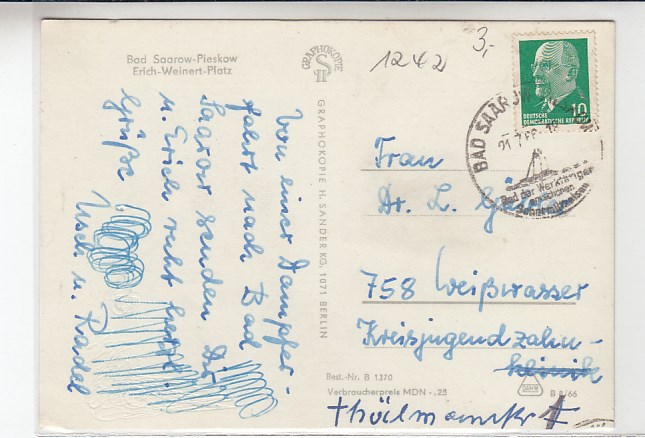 Bad Saarow-Pieskow
Erich-Weinert-Platz
Von einer Dampfer-
fahrt nach Bad
Saarow senden Dir
u. Erich recht herzl.
Grüße
Usch u. Radel
GRAPHOKOPIE
GRAPHOKOPIE H. SANDER KG, 1071 BERLIN
1242
3,-
DEUTSCHE
DEMOKRATISCHE REPUBLIK
10
BAD SAAROW
Bad der Werktätigen
am schönen
Scharmützelsee
Frau
Dr. L.
758 Weißwasser
Kreisjugendzahn-
klinik
Thälmannstr.
Best.-Nr. B 1370
Verbraucherpreis MDN -.25
B 8/66